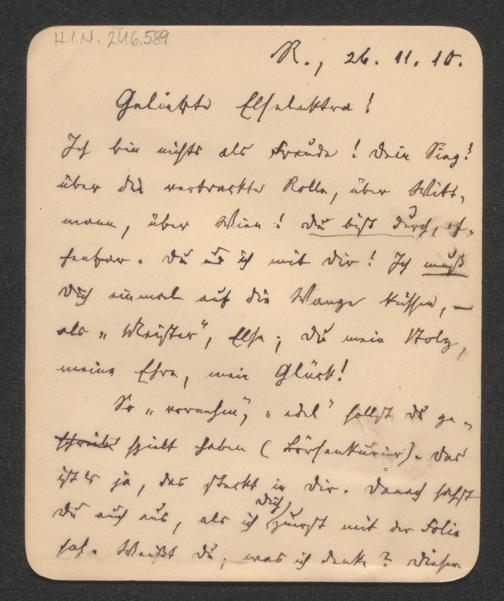 H.I.N. 246.589
R., 26. 11. 10.
Geliebte Elselektra!
Ich bin nichts als Freude! Dein Sieg!
über die vertrackte Rolle, über Witt-
mann, über Wien! Du bist durch, of-
fenbar. Du und ich mit Dir! Ich muß
Dich einmal auf die Wange küssen, –
als „Meister", Else; Du mein Stolz,
meine Ehre, mein Glück!
So „vornehm", „edel" sollst Du ge-
spielt haben (Börsenkurier). Das
ist's ja, das steckt in Dir. Danach sahst
Du auch aus, als ich Dich zuerst mit der Folie
sah. Weißt Du, was ich denke? Diesen